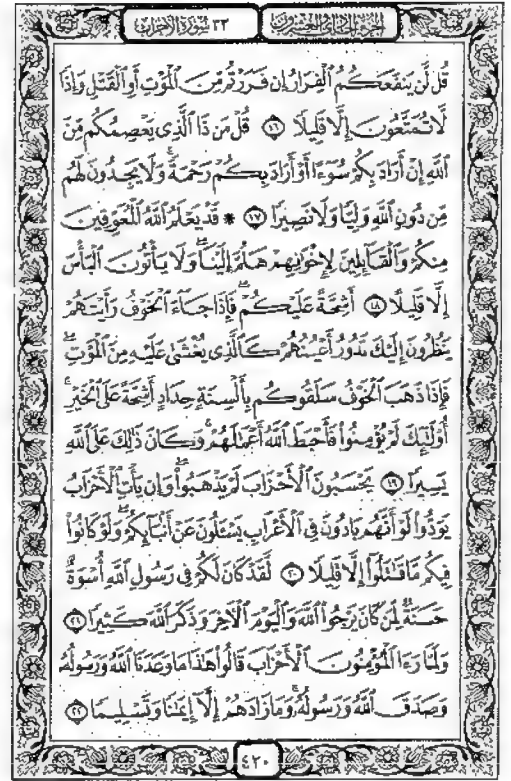 ٣٣ سورة الأحزاب
الجزء الحادي والعشرون
قُل لَّن يَنفَعَكُمُ ٱلْفِرَارُ إِن فَرَرْتُم مِّنَ ٱلْمَوْتِ أَوِ ٱلْقَتْلِ وَإِذًا
لَّا تُمَتَّعُونَ إِلَّا قَلِيلًا ١٦ قُلْ مَن ذَا ٱلَّذِى يَعْصِمُكُم مِّنَ
ٱللَّهِ إِنْ أَرَادَ بِكُمْ سُوٓءًا أَوْ أَرَادَ بِكُمْ رَحْمَةً ۚ وَلَا يَجِدُونَ لَهُم
مِّن دُونِ ٱللَّهِ وَلِيًّا وَلَا نَصِيرًا ١٧ * قَدْ يَعْلَمُ ٱللَّهُ ٱلْمُعَوِّقِينَ
مِنكُمْ وَٱلْقَآئِلِينَ لِإِخْوَٰنِهِمْ هَلُمَّ إِلَيْنَا ۖ وَلَا يَأْتُونَ ٱلْبَأْسَ
إِلَّا قَلِيلًا ١٨ أَشِحَّةً عَلَيْكُمْ ۖ فَإِذَا جَآءَ ٱلْخَوْفُ رَأَيْتَهُمْ
يَنظُرُونَ إِلَيْكَ تَدُورُ أَعْيُنُهُمْ كَٱلَّذِى يُغْشَىٰ عَلَيْهِ مِنَ ٱلْمَوْتِ ۖ
فَإِذَا ذَهَبَ ٱلْخَوْفُ سَلَقُوكُم بِأَلْسِنَةٍ حِدَادٍ أَشِحَّةً عَلَى ٱلْخَيْرِ ۚ
أُو۟لَٰٓئِكَ لَمْ يُؤْمِنُوا۟ فَأَحْبَطَ ٱللَّهُ أَعْمَٰلَهُمْ ۚ وَكَانَ ذَٰلِكَ عَلَى ٱللَّهِ
يَسِيرًا ١٩ يَحْسَبُونَ ٱلْأَحْزَابَ لَمْ يَذْهَبُوا۟ ۖ وَإِن يَأْتِ ٱلْأَحْزَابُ
يَوَدُّوا۟ لَوْ أَنَّهُم بَادُونَ فِى ٱلْأَعْرَابِ يَسْـَٔلُونَ عَنْ أَنۢبَآئِكُمْ ۖ وَلَوْ كَانُوا۟
فِيكُم مَّا قَٰتَلُوٓا۟ إِلَّا قَلِيلًا ٢٠ لَّقَدْ كَانَ لَكُمْ فِى رَسُولِ ٱللَّهِ أُسْوَةٌ
حَسَنَةٌ لِّمَن كَانَ يَرْجُوا۟ ٱللَّهَ وَٱلْيَوْمَ ٱلْءَاخِرَ وَذَكَرَ ٱللَّهَ كَثِيرًا ٢١
وَلَمَّا رَءَا ٱلْمُؤْمِنُونَ ٱلْأَحْزَابَ قَالُوا۟ هَٰذَا مَا وَعَدَنَا ٱللَّهُ وَرَسُولُهُۥ
وَصَدَقَ ٱللَّهُ وَرَسُولُهُۥ ۚ وَمَا زَادَهُمْ إِلَّآ إِيمَٰنًا وَتَسْلِيمًا ٢٢
٤٢٠